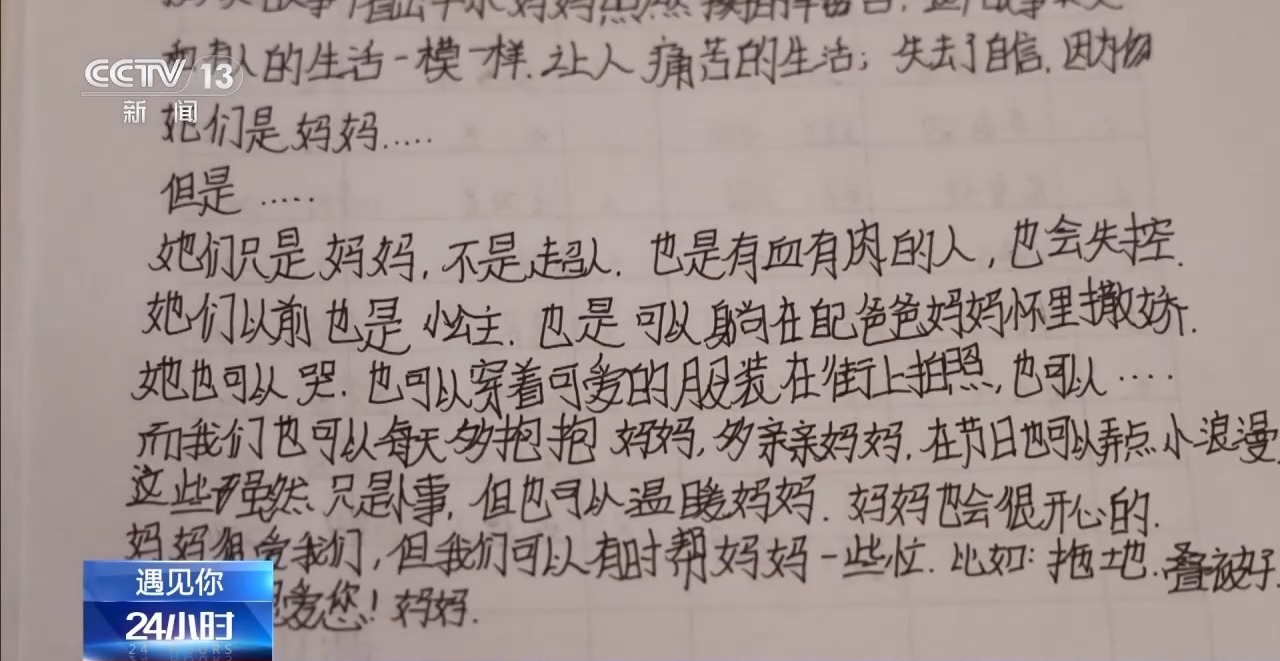 的生活一模一样.让人痛苦的生活；失去了自信.因为
CCTV 13
新闻
她们是妈妈.....
但是.....
她们只是妈妈,不是超人.也是有血有肉的人,也会失控.
她们以前也是小公主.也是可以躺在自己爸爸妈妈怀里撒娇.
她也可以哭.也可以穿着可爱的服装在街上拍照,也可以....
而我们也可以每天多抱抱妈妈,多亲亲妈妈.在节日也可以弄点小浪漫
这些虽然只是小事,但也可以温暖妈妈.妈妈也会很开心的.
妈妈很爱我们,但我们可以有时帮妈妈一些忙.比如:拖地.叠被好
爱您!妈妈.
遇见你
24小时
24 HOURS